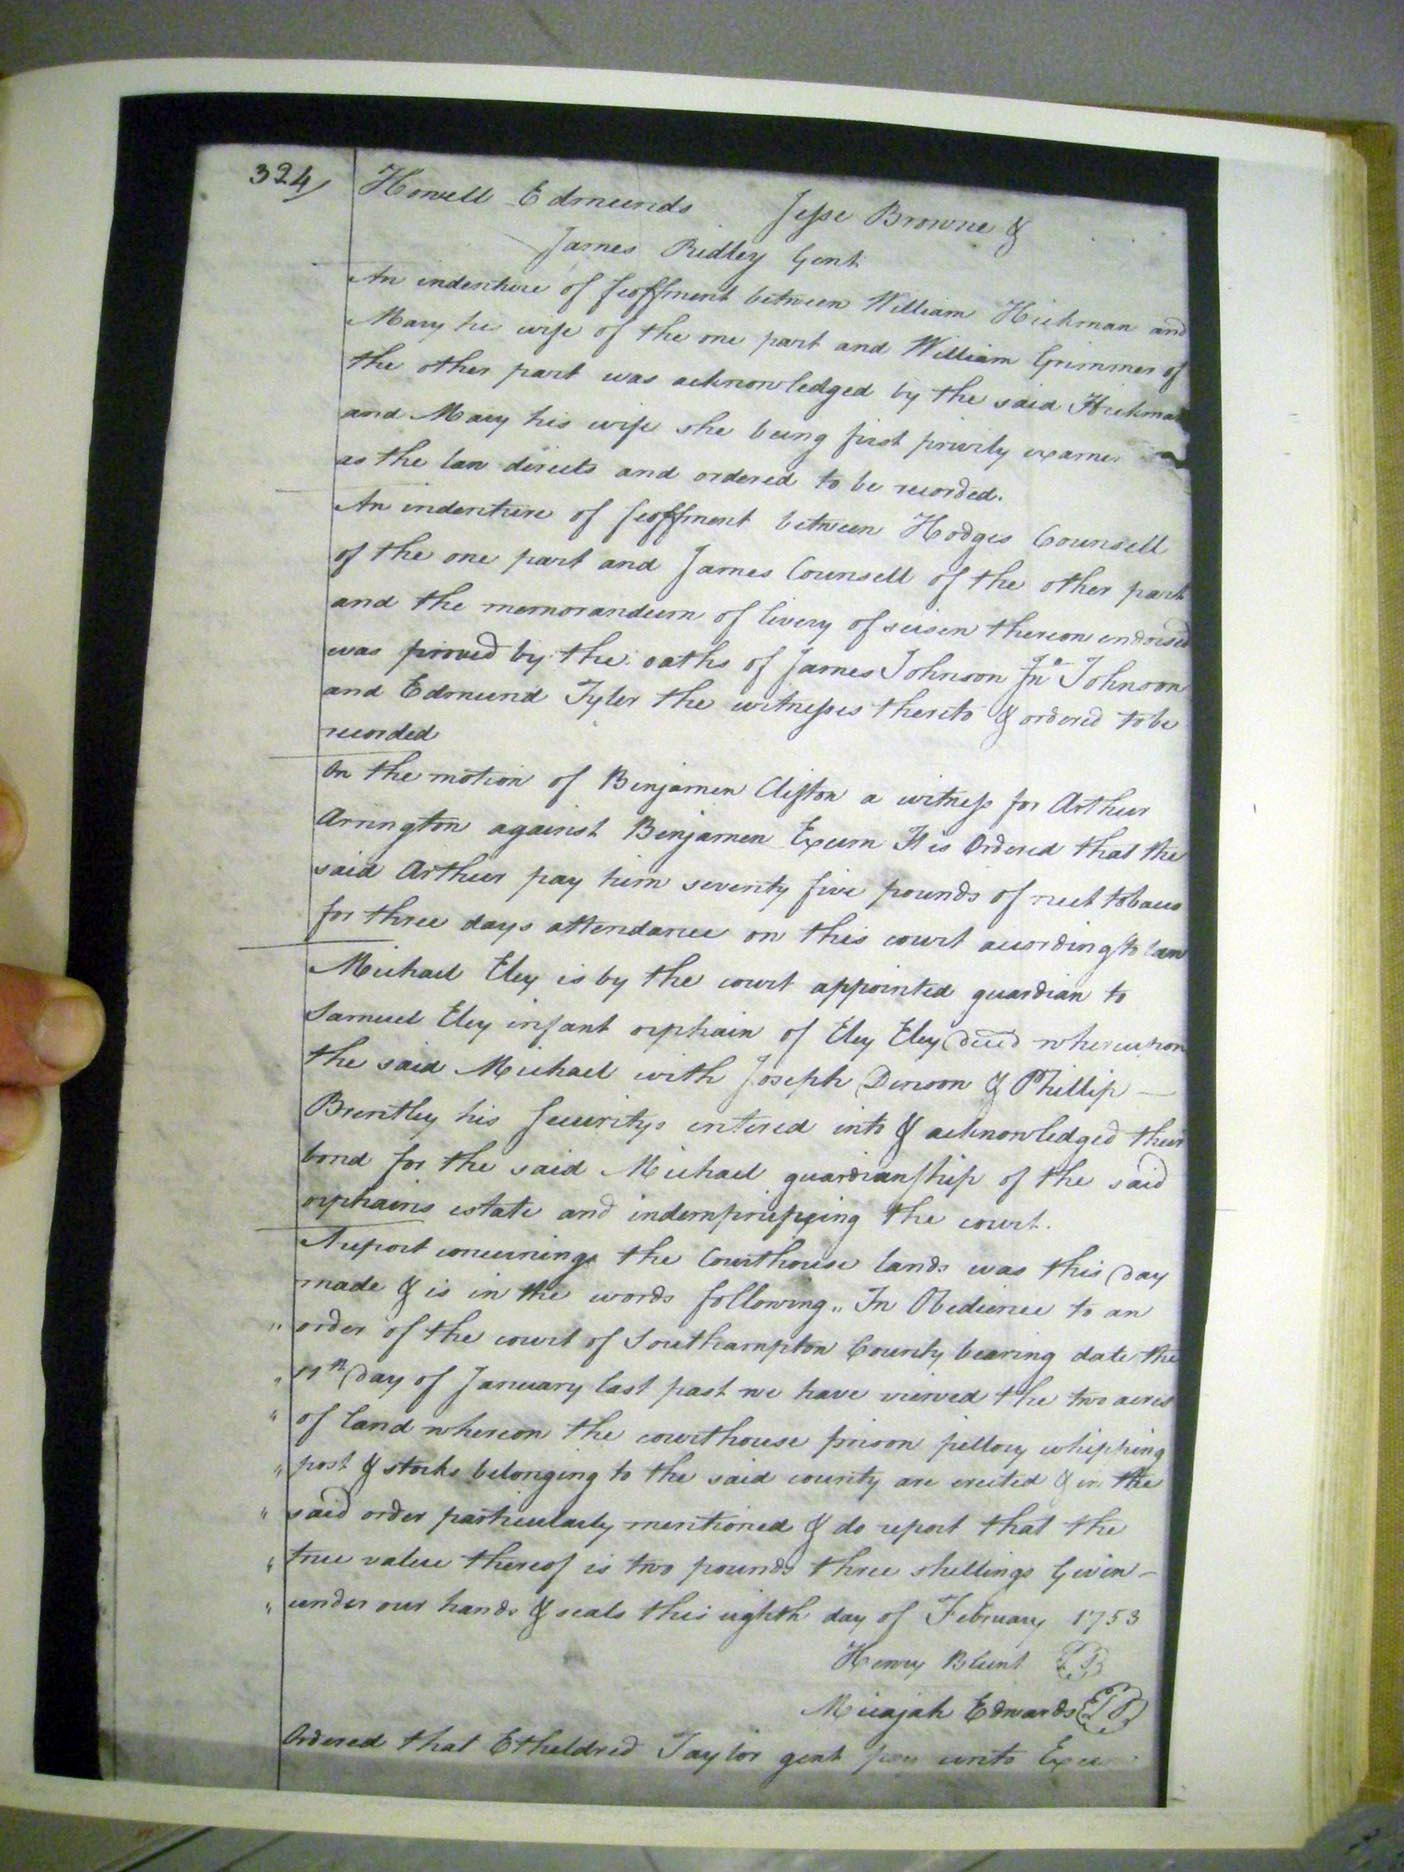 324/
Howell Edmunds Jesse Browne &
James Ridley Gent
An indenture of feoffment between William Hickman and
Mary his wife of the one part and William Grimmer of
the other part was acknowledged by the said Hickman
and Mary his wife she being first privily
as the law directs and ordered to be recorded.
An indenture of feoffment between Hodges Counsell
of the one part and James Counsell of the other part
and the memorandum of livery of seisen thereon endorsed
was proved by the oaths of James Johnson Johnson
and Edmund Tyler the witnesses thereto & ordered to be
recorded
On the motion of Benjamen Clifton a witness for Arthur
Arrington against Benjamen Exum It is Ordered that the
said Arthur pay him seventy five pounds of neet tobacco
for three days attendance on this court according to law
Michael Eley is by the court appointed guardian to
Samuel Eley infant orphain of Eley Eley decd whereupon
the said Michael with Joseph Denson & Phillip —
Brantley his Securitys entered into & acknowledged their
bond for the said Michael guardianship of the said
orphains estate and the court.
A report concerning the Courthouse lands was this day
made & is in the words following „ In Obedience to an
„ order of the court of Southampton County bearing date the
„ 11th day of January last past we have viewed the two acres
„ of land whereon the courthouse prison pillory whipping
„ post & stocks belonging to the said county are erected & in the
„ said order particularly mentioned & do report that the
„ true value thereof is two pounds three shillings Given —
„ under our hands & seals this eighth day of February 1753
Henry Blunt
Micajah Edwards
Ordered that Etheldred Taylor gent pay unto